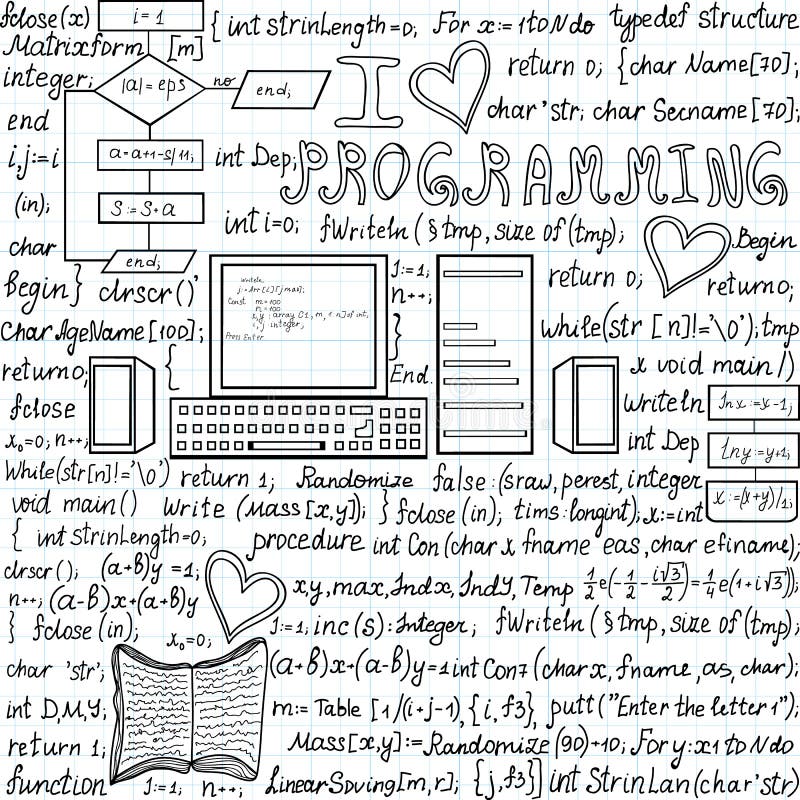 fclose(x) i=1 { int strinLength=0; For x:=1toNdo typedef structure
Matrixform [m]
integer; |a|=eps no end; I return 0; {char Name[70];
end char 'str; char Secname[70];
i,j:=i a=a+1-s/11; int Dep; PROGRAMMING
(in); S:=S+a int i=0; fWriteln (§tmp, size of(tmp);
char end; Begin
Begin} clrscr()' return 0; return0;
Writeln
j:=Arr[i][jmax];
Const m=100
n=100
x,y : array [1., m, 1..n] of int,
i, j integer;
Press Enter
I:=1;
n++;
}
End.
CharAgeName[100]; while(str[n]!='\0');tmp
return0; { x void main()
fclose Writeln Inx:=x-1;
x₀=0; n++; int Dep Iny:=y+1;
While(str[n]!='\0') return 1; Randomize false:(sraw, perest, integer
x:=(x+y)/1;
void main() Write (Mass[x,y]); } fclose(in); tims:longint); x:=int
{ int strinLength=0; procedure int Con(char x fname eas,char efiname);
clrscr(); (a+b)y=1;
n++; (a-b)x+(a+b)y x,y,max,Indx,IndY,Temp 1/2e(-1/2-i√3/2)=1/4e(1+i√3));
} fclose(in); x₀=0; I:=1; inc(s):Integer; fWriteln(§tmp,size of(tmp);
char 'str'; (a+b)x+(a-b)y=1 int Con7(charx, fname,as, char);
int D,M,Y; m:=Table [1/(i+j-1),{i,f3}, putt("Enter the letter 1");
return 1; Mass[x,y]:=Randomize(90)+10; For y:x1 to N do
function I:=1; n++; LinearSoving[m,r]; {j,f3}] int StrinLan(char'str)